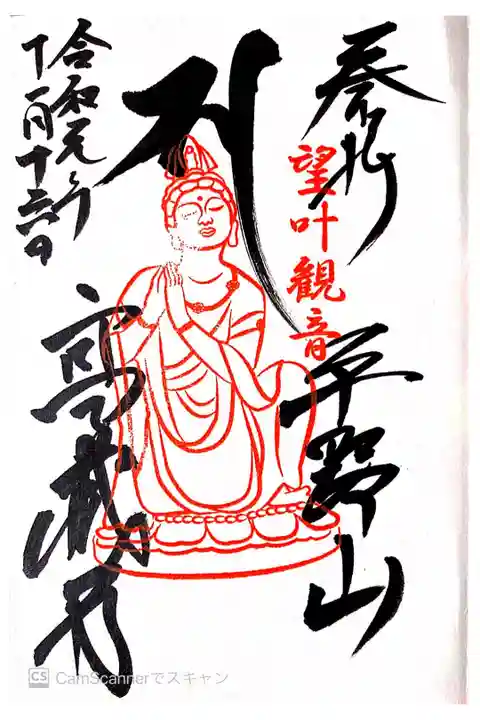 奉拝
望叶観音
平野山
令和元年
高蔵寺
CS CamScannerでスキャン